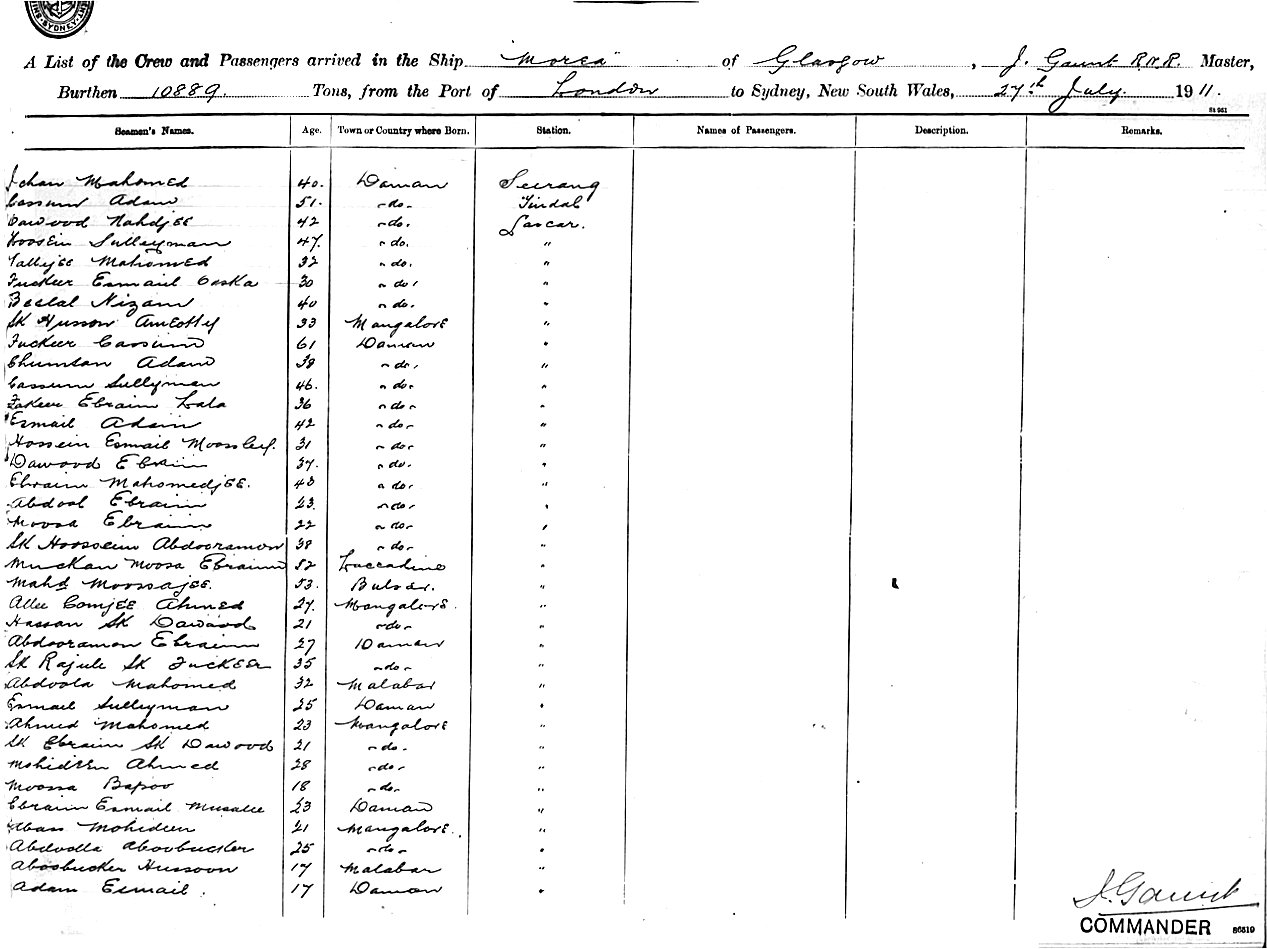 SYDNEY
A List of the Crew and Passengers arrived in the Ship "Morea" of Glasgow, J. Gaunt R.N.R. Master,
Burthen 10889. Tons, from the Port of London to Sydney, New South Wales, 27th July 1911.
Seamen's Names. Age. Town or Country where Born. Station. Names of Passengers. Description. Remarks.
Mahomed 40. Daman Seirang
Cassum Adam 51. -do- Tindal
Dawood Nahdjee 42 -do- Lascar.
Hoosein Sulleyman 47. -do. "
Vallejee Mahomed 32 -do. "
Fuckeer Esmail Coska 30 -do. "
Beelal Nizam 40 -do. "
Sk Husson 33 Mangalore "
Fuckeer Cassum 61 Daman "
Adam 38 -do. "
Cassum Sullyman 46. -do- "
Fakeer Ebraim Lala 36 -do- "
Esmail Adam 42 -do- "
Hossein Esmail 31 -do- "
Dawood Ebraim 37. -do. "
Ebraim Mahomedjee. 43 -do- "
Abdool Ebraim 23. -do- "
Moosa Ebraim 22 -do- "
Sk Hoossein Abdooramon 38 -do- "
Moosa Ebraim 52 Laccadine "
Mahd Moossajee. 53. Bulsar. "
Allee Comjee Ahmed 27. Mangalore. "
Hassan Sk Dawood 21 -do- "
Abdooramon Ebraim 27 Daman "
Sk Rajule Sk Fuckeer 35 -do- "
Abdoola Mahomed 32 Malabar "
Esmail Sulleyman 25 Daman "
Ahmed Mahomed 23 Mangalore "
Sk Ebraim Sk Dawood 21 -do- "
Mohideen Ahmed 28 -do- "
Moosa Bapoo 18 -do- "
Ebraim Esmail Musalee 23 Daman "
Abass Mohideen 21 Mangalore. "
Abdoolla Aboobucker 25 -do- "
Aboobucker Hussoon 17 Malabar "
Adam Esmail. 17 Daman "
J. Gaunt
COMMANDER 86519